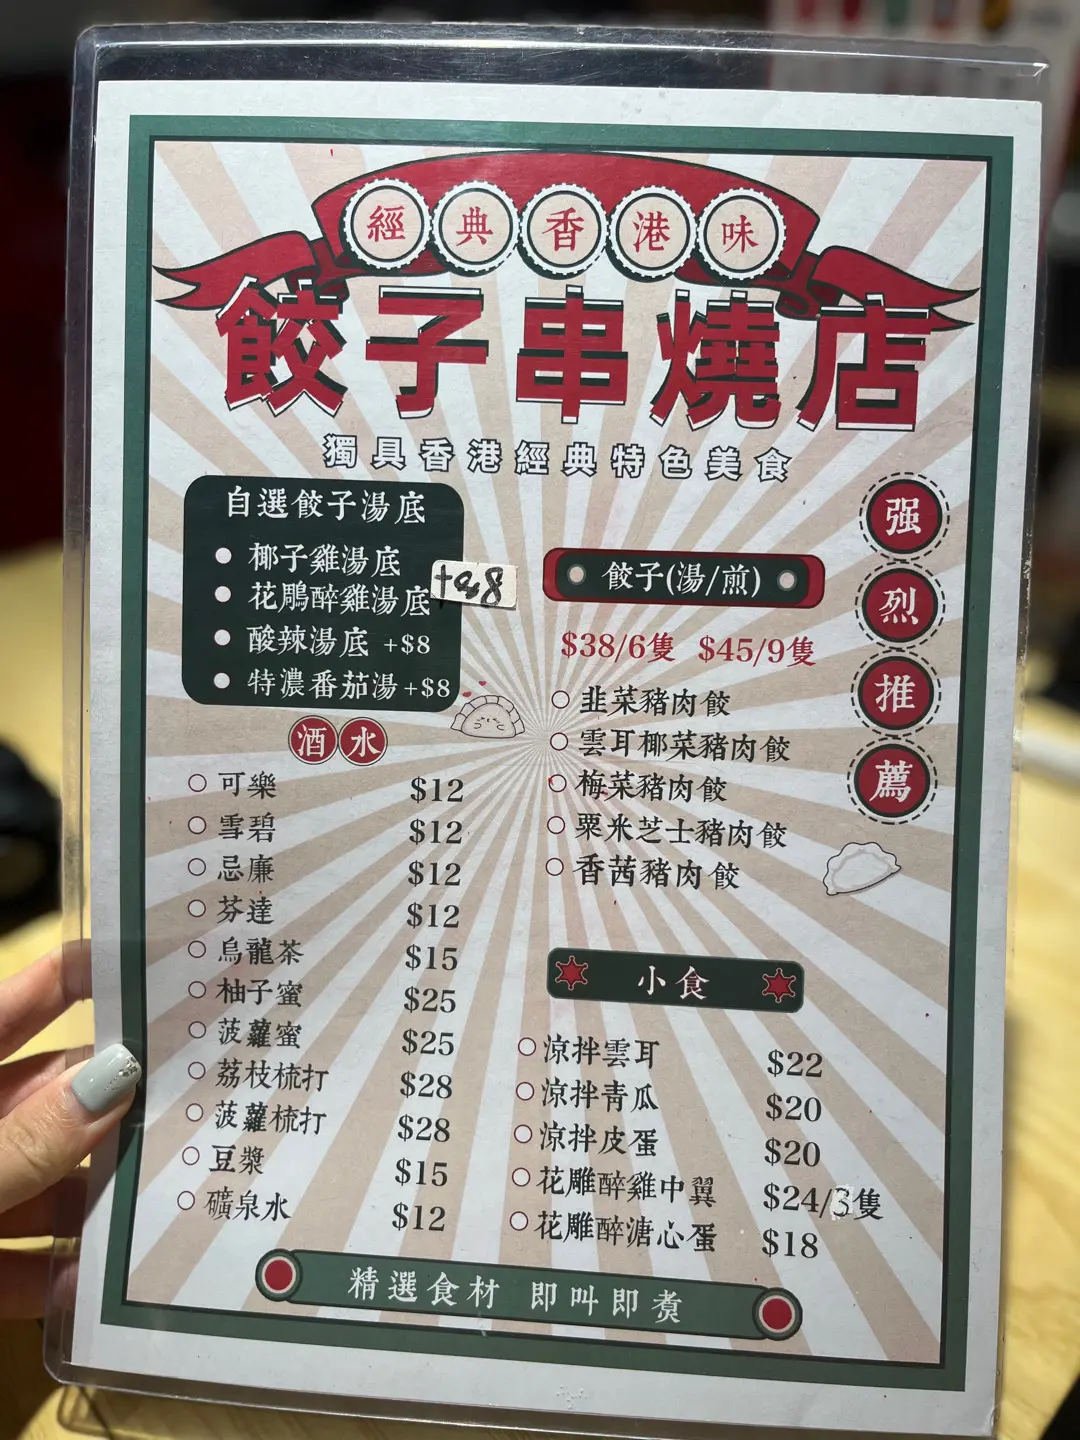 經典香港味
餃子串燒店
獨具香港經典特色美食
自選餃子湯底
椰子雞湯底
花鵰醉雞湯底 +$8
酸辣湯底 +$8
特濃番茄湯 +$8
酒水
可樂 $12
雪碧 $12
忌廉 $12
芬達 $12
烏龍茶 $15
柚子蜜 $25
菠蘿蜜 $25
荔枝梳打 $28
菠蘿梳打 $28
豆漿 $15
礦泉水 $12
强烈推薦
餃子(湯/煎)
$38/6隻 $45/9隻
韭菜豬肉餃
雲耳椰菜豬肉餃
梅菜豬肉餃
粟米芝士豬肉餃
香茜豬肉餃
小食
涼拌雲耳 $22
涼拌青瓜 $20
涼拌皮蛋 $20
花雕醉雞中翼 $24/3隻
花雕醉溏心蛋 $18
精選食材 即叫即煮